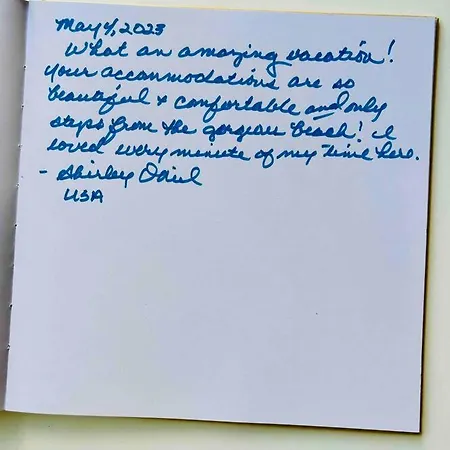 May 4, 2023
What an amazing vacation!
Your accommodations are so
beautiful & comfortable and only
steps from the gorgeous beach! I
loved every minute of my time here.
- Shirley
USA